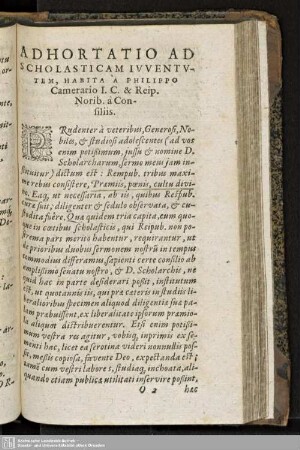 ADHORTATIO AD
SCHOLASTICAM IVVENTV-
TEM, HABITA A PHILIPPO
Camerario I. C. & Reip.
Norib. á Con-
siliis.
PRudenter à veteribus, Generosi, No-
biles, & studiosi adolescentes (ad vos
enim potissimum, jussu & nomine D.
Scholarcharum, sermo meus jam in-
stituitur) dictum est: Rempub. tribus maxi-
me rebus consistere, Præmiis, pœnis, cultu divi-
no. Eaq; ut necessaria, ab iis, quibus Reipub.
cura fuit, diligenter & sedulo observata, & cu-
stodita fuêre. Qua quidem tria capita, cum quo-
que in cœtibus scholasticis, qui Reipub. non po-
strema pars merito habentur, requirantur, ut
de prioribus duobus sermonem nostrũ in tempus
commodius differamus, sapienti certe consilio ab
amplissimo senatu nostro, & D. Scholarchis, ne
quid hac in parte desiderari possit, institutum
est, ut quotannis iis, qui præ cæteris in studiis li-
beralioribus specimen aliquod diligentiæ suæ pa-
lam præbuissent, ex liberalitate ipsorum præmio-
la aliquot distribuerentur. Etsi enim potissi-
mum vestra res agitur, vobisq; inprimis ex se-
menti hac, licet ea serotina videri nonnullis pos-
sit, messis copiosa, favente Deo, expectanda est;
tamẽ cum vestri labores, studiaq; inchoata, ali-
quando etiam publicæ utilitati inservire possint,
O 2 hæc